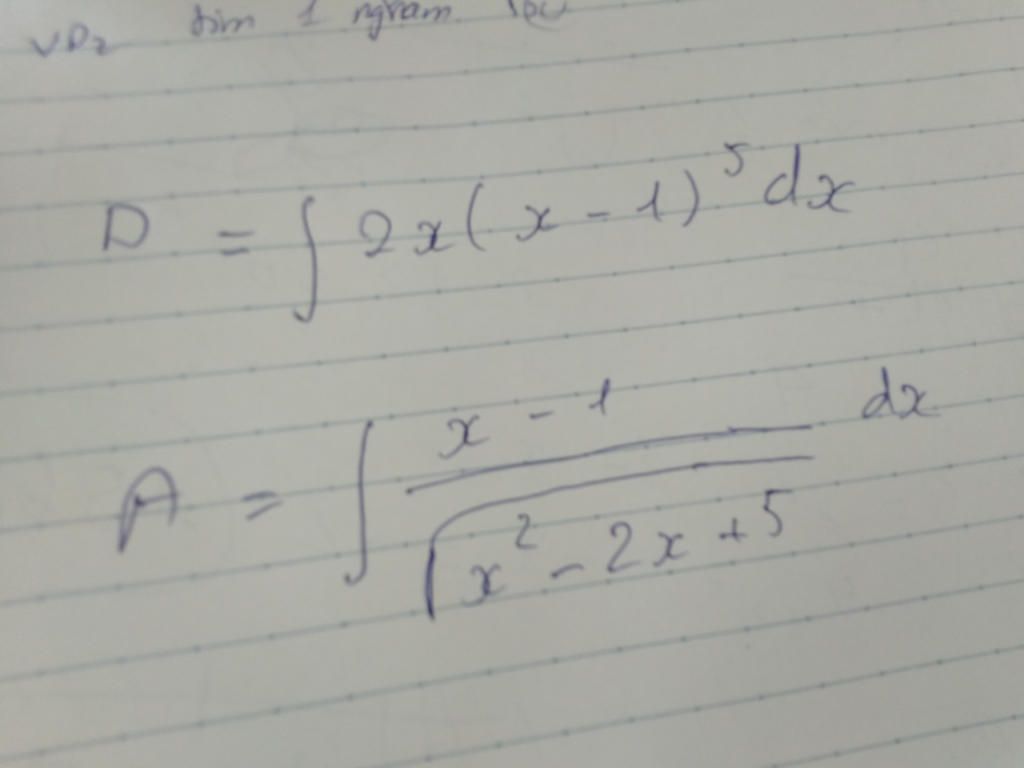 VD2 tìm 1 ngram
D = ∫ 2x(x - 1)^5 dx
A = ∫ (x - 1)/√(x^2 - 2x + 5) dx